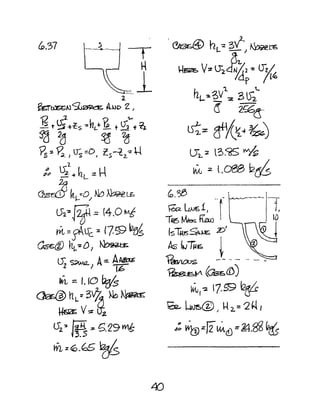 6.37
S
H
2
BETWEEN SURFACE AND 2,
Ps/ρg + Us²/2g + Zs = hL + P2/ρg + U2²/2g + Z2
Ps = P2, Us = 0, Zs - Z2 = H
∴ U2²/2g + hL = H
CASE① hL = 0, NO NOZZLE
U2 = √2gH = 14.0 m/s
ṁ = ρAU2 = 17.59 kg/s
CASE② hL = 0, NOZZLE
U2 SAME, A = APIPE/16
ṁ = 1.10 kg/s
CASE③ hL = 3V²/g, NO NOZZLE
HERE V = U2
U2 = √(gH/3.5) = 5.29 m/s
ṁ = 6.65 kg/s
CASE④ hL = 3V²/g, NOZZLE
HERE V = U2 dN²/dp² = U2/16
hL = 3V²/g = 3U2²/256g
U2² = gH/(½ + 3/256)
U2 = 13.85 m/s
ṁ = 1.088 kg/s
6.38
FOR LINE 1,
THE MASS FLOW
IS THE SAME
AS IN THE
PREVIOUS
PROBLEM (CASE①)
10
20'
①
②
ṁ1 = 17.59 kg/s
FOR LINE②, H2 = 2H1
∴ ṁ② = √2 ṁ① = 24.88 kg/s
40